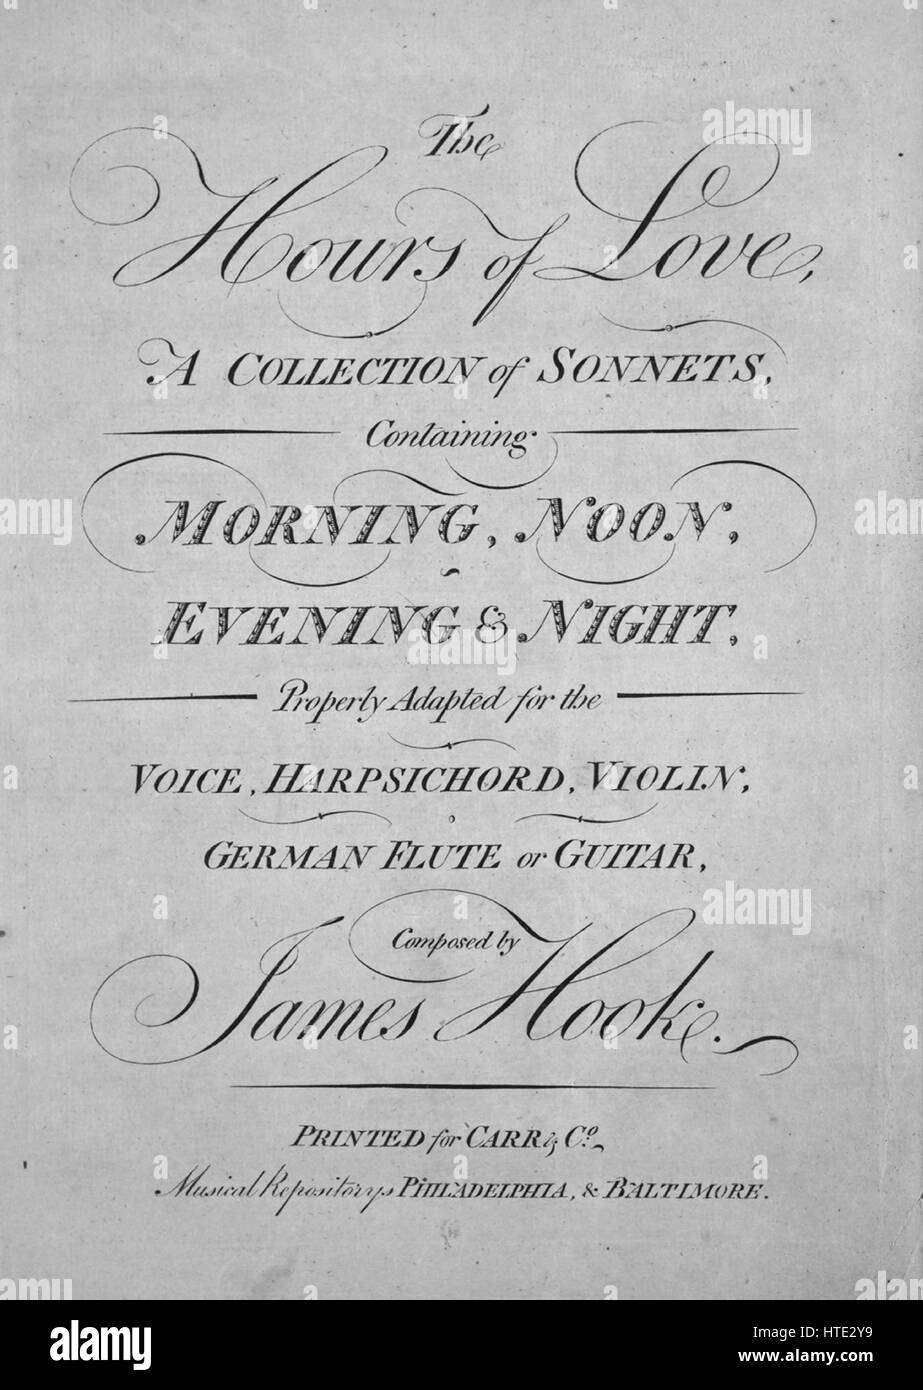 The
Hours of Love,
A COLLECTION of SONNETS,
Containing
MORNING, NOON,
EVENING & NIGHT,
Properly Adapted for the
VOICE, HARPSICHORD, VIOLIN,
GERMAN FLUTE or GUITAR,
Composed by
James Hook.
PRINTED for CARR & Co.
Musical Repositorys PHILADELPHIA, & BALTIMORE.
alamy
alamy
Image ID: HTE2Y9
www.alamy.com